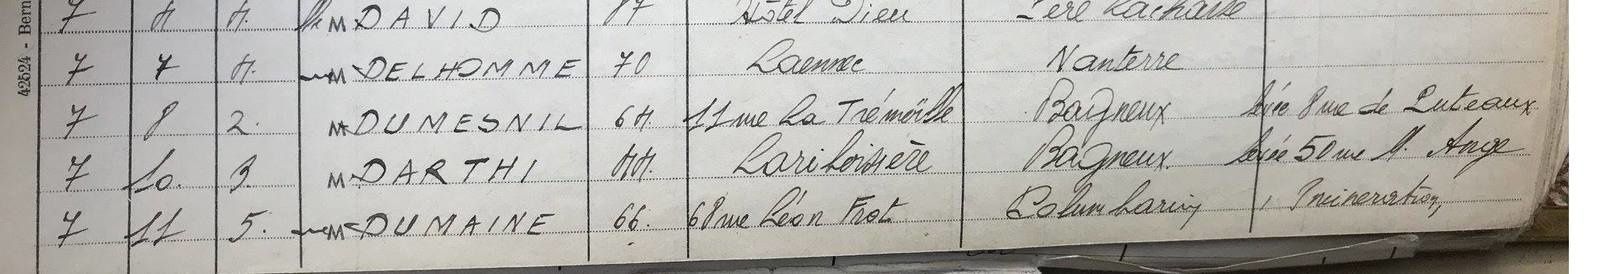 7 4 4. M DAVID 87 Hôtel Dieu Père Lachaise
7 7 4. M DELHOMME 70 Laennec Nanterre
7 8 2. M DUMESNIL 64. 11 rue La Trémoïlle Bagneux 8 rue de Puteaux.
7 10. 3. M DARTHI 44. Lariboisière Bagneux. 50 rue M. Ange
7 11 5. M DUMAINE 66. 68 rue Léon Frot Columbarium Incineration,
42524 - Bern